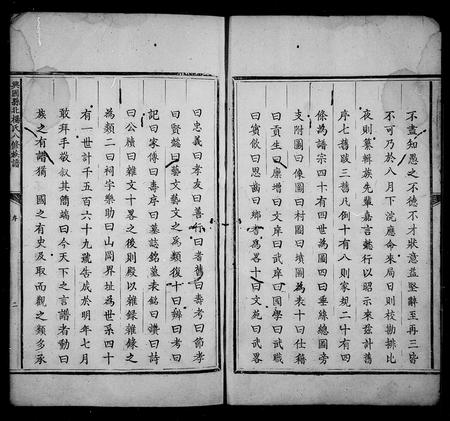 不盡知愚之不德不才狀意益堅辭至再三皆
不可乃於八月下浣應命來局日則校勘排比
夜則纂輯族先輩嘉言懿行以昭示來茲計舊
序七舊跋三舊凡例十有八則家規二十有四
條為譜宗四十有四世為圖四曰垂絲總圖旁
支附圖曰像圖曰村圖曰墳圖為表十曰仕籍
曰貢生曰廩增曰文庠曰武庠曰國學曰武職
曰賓飲曰恩齒曰鄉耆為畧十曰文苑曰武畧
曰忠義曰孝友曰善行曰耆舊曰壽考曰節孝
曰賢媛曰藝文藝文之為類復十曰辨曰考曰
記曰家傳曰壽序曰墓誌銘墓表銘曰讚曰詩
曰公牘曰雜文十畧之後則殿以雜錄雜錄之
為類二曰祠宇樂助曰山岡界址為世系四十
有一世計千五百六十九號告成於明年七月
敢拜手敬敘其簡端曰今天下之言譜者動曰
族之有譜猶 國之有史及取而觀之類多承
興國縣北楊氏八修族譜
序
二